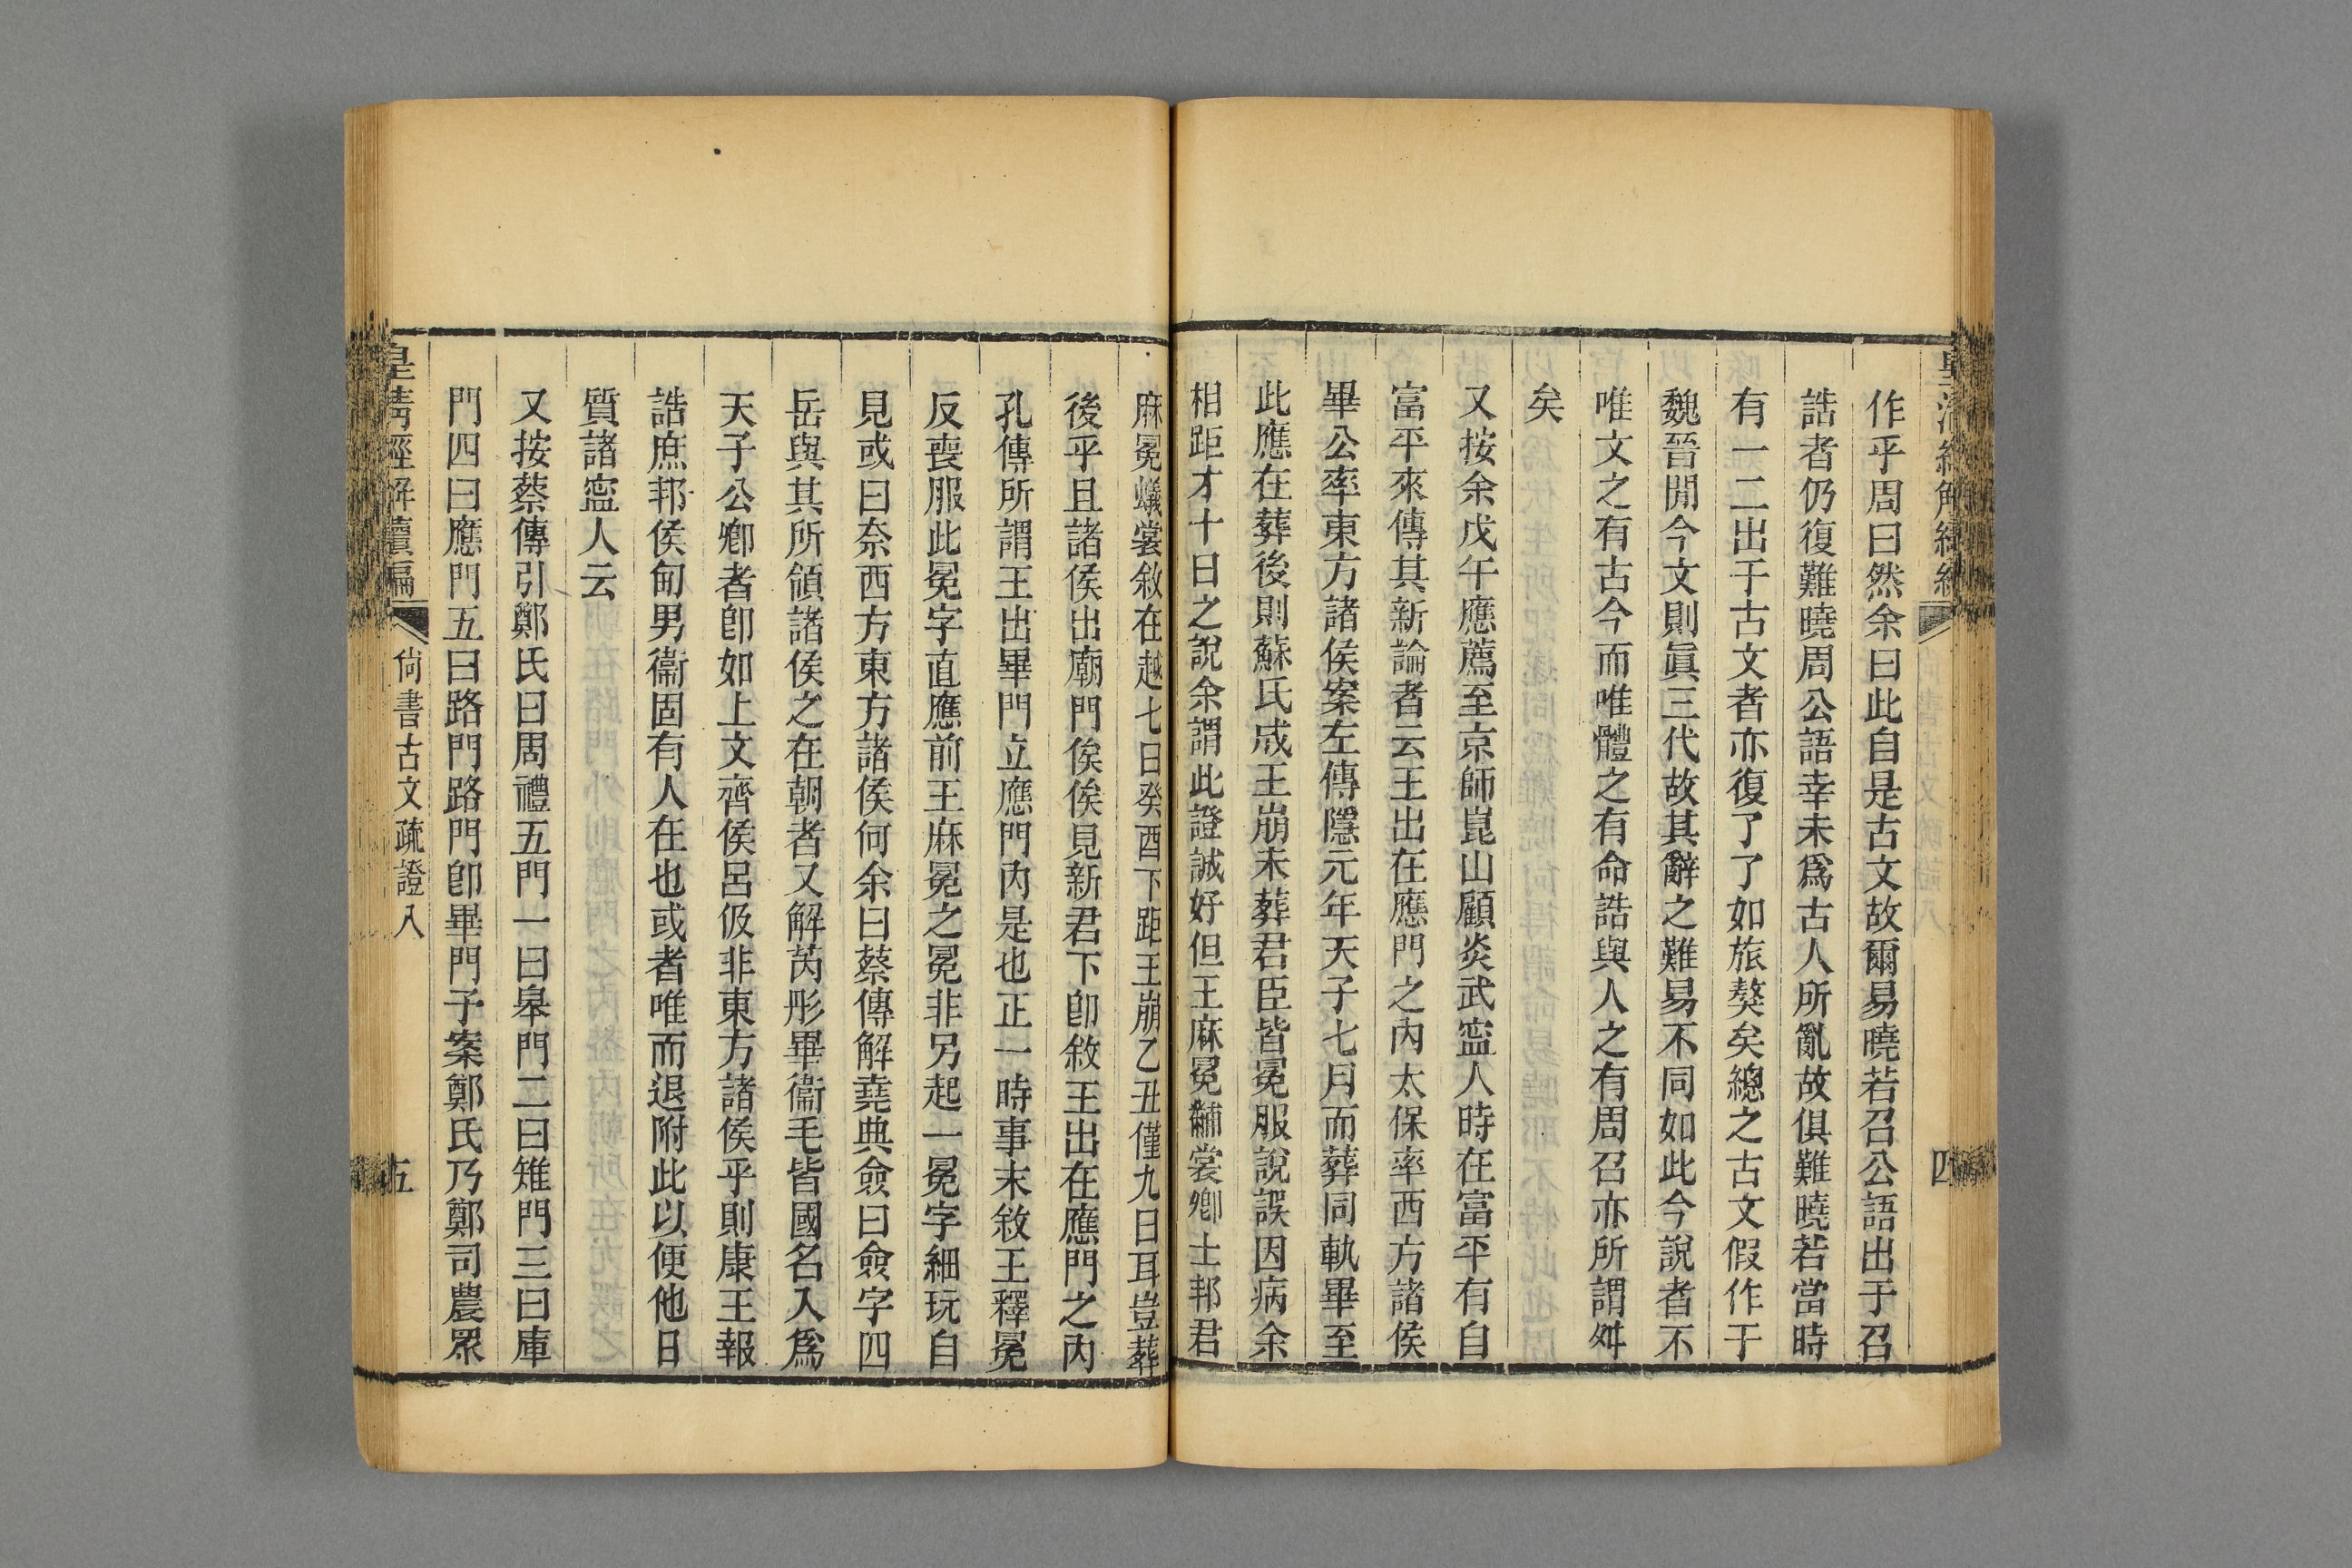 四
作乎周曰然余曰此自是古文故爾易曉若召公語出于召
誥者仍復難曉周公語幸未爲古人所亂故俱難曉若當時
有一二出于古文者亦復了了如旅獒矣總之古文假作于
魏晉閒今文則眞三代故其辭之難易不同如此今說者不
唯文之有古今而唯體之有命誥與人之有周召亦所謂舛
矣
又按余戊午應薦至京師崑山顧炎武寍人時在富平有自
富平來傳其新論者云王出在應門之內太保率西方諸侯
畢公率東方諸侯案左傳隱元年天子七月而葬同軌畢至
此應在葬後則蘇氏成王崩未葬君臣皆冕服說誤因病余
相距才十日之說余謂此證誠好但王麻冕黼裳卿士邦君
麻冕蟻裳敘在越七日癸酉下距王崩乙丑僅九日耳豈葬
後乎且諸侯出廟門俟俟見新君下卽敘王出在應門之內
孔傳所謂王出畢門立應門內是也正一時事末敘王釋冕
反喪服此冕字直應前王麻冕之冕非另起一冕字細玩自
見或曰奈西方東方諸侯何余曰蔡傳解堯典僉曰僉字四
岳與其所領諸侯之在朝者又解芮彤畢衞毛皆國名入爲
天子公卿者卽如上文齊侯呂伋非東方諸侯乎則康王報
誥庶邦侯甸男衞固有人在也或者唯而退附此以便他日
質諸寍人云
又按蔡傳引鄭氏曰周禮五門一曰皋門二曰雉門三曰庫
門四曰應門五曰路門路門卽畢門子案鄭氏乃鄭司農眾
皇清經解續編
尙書古文疏證八
五